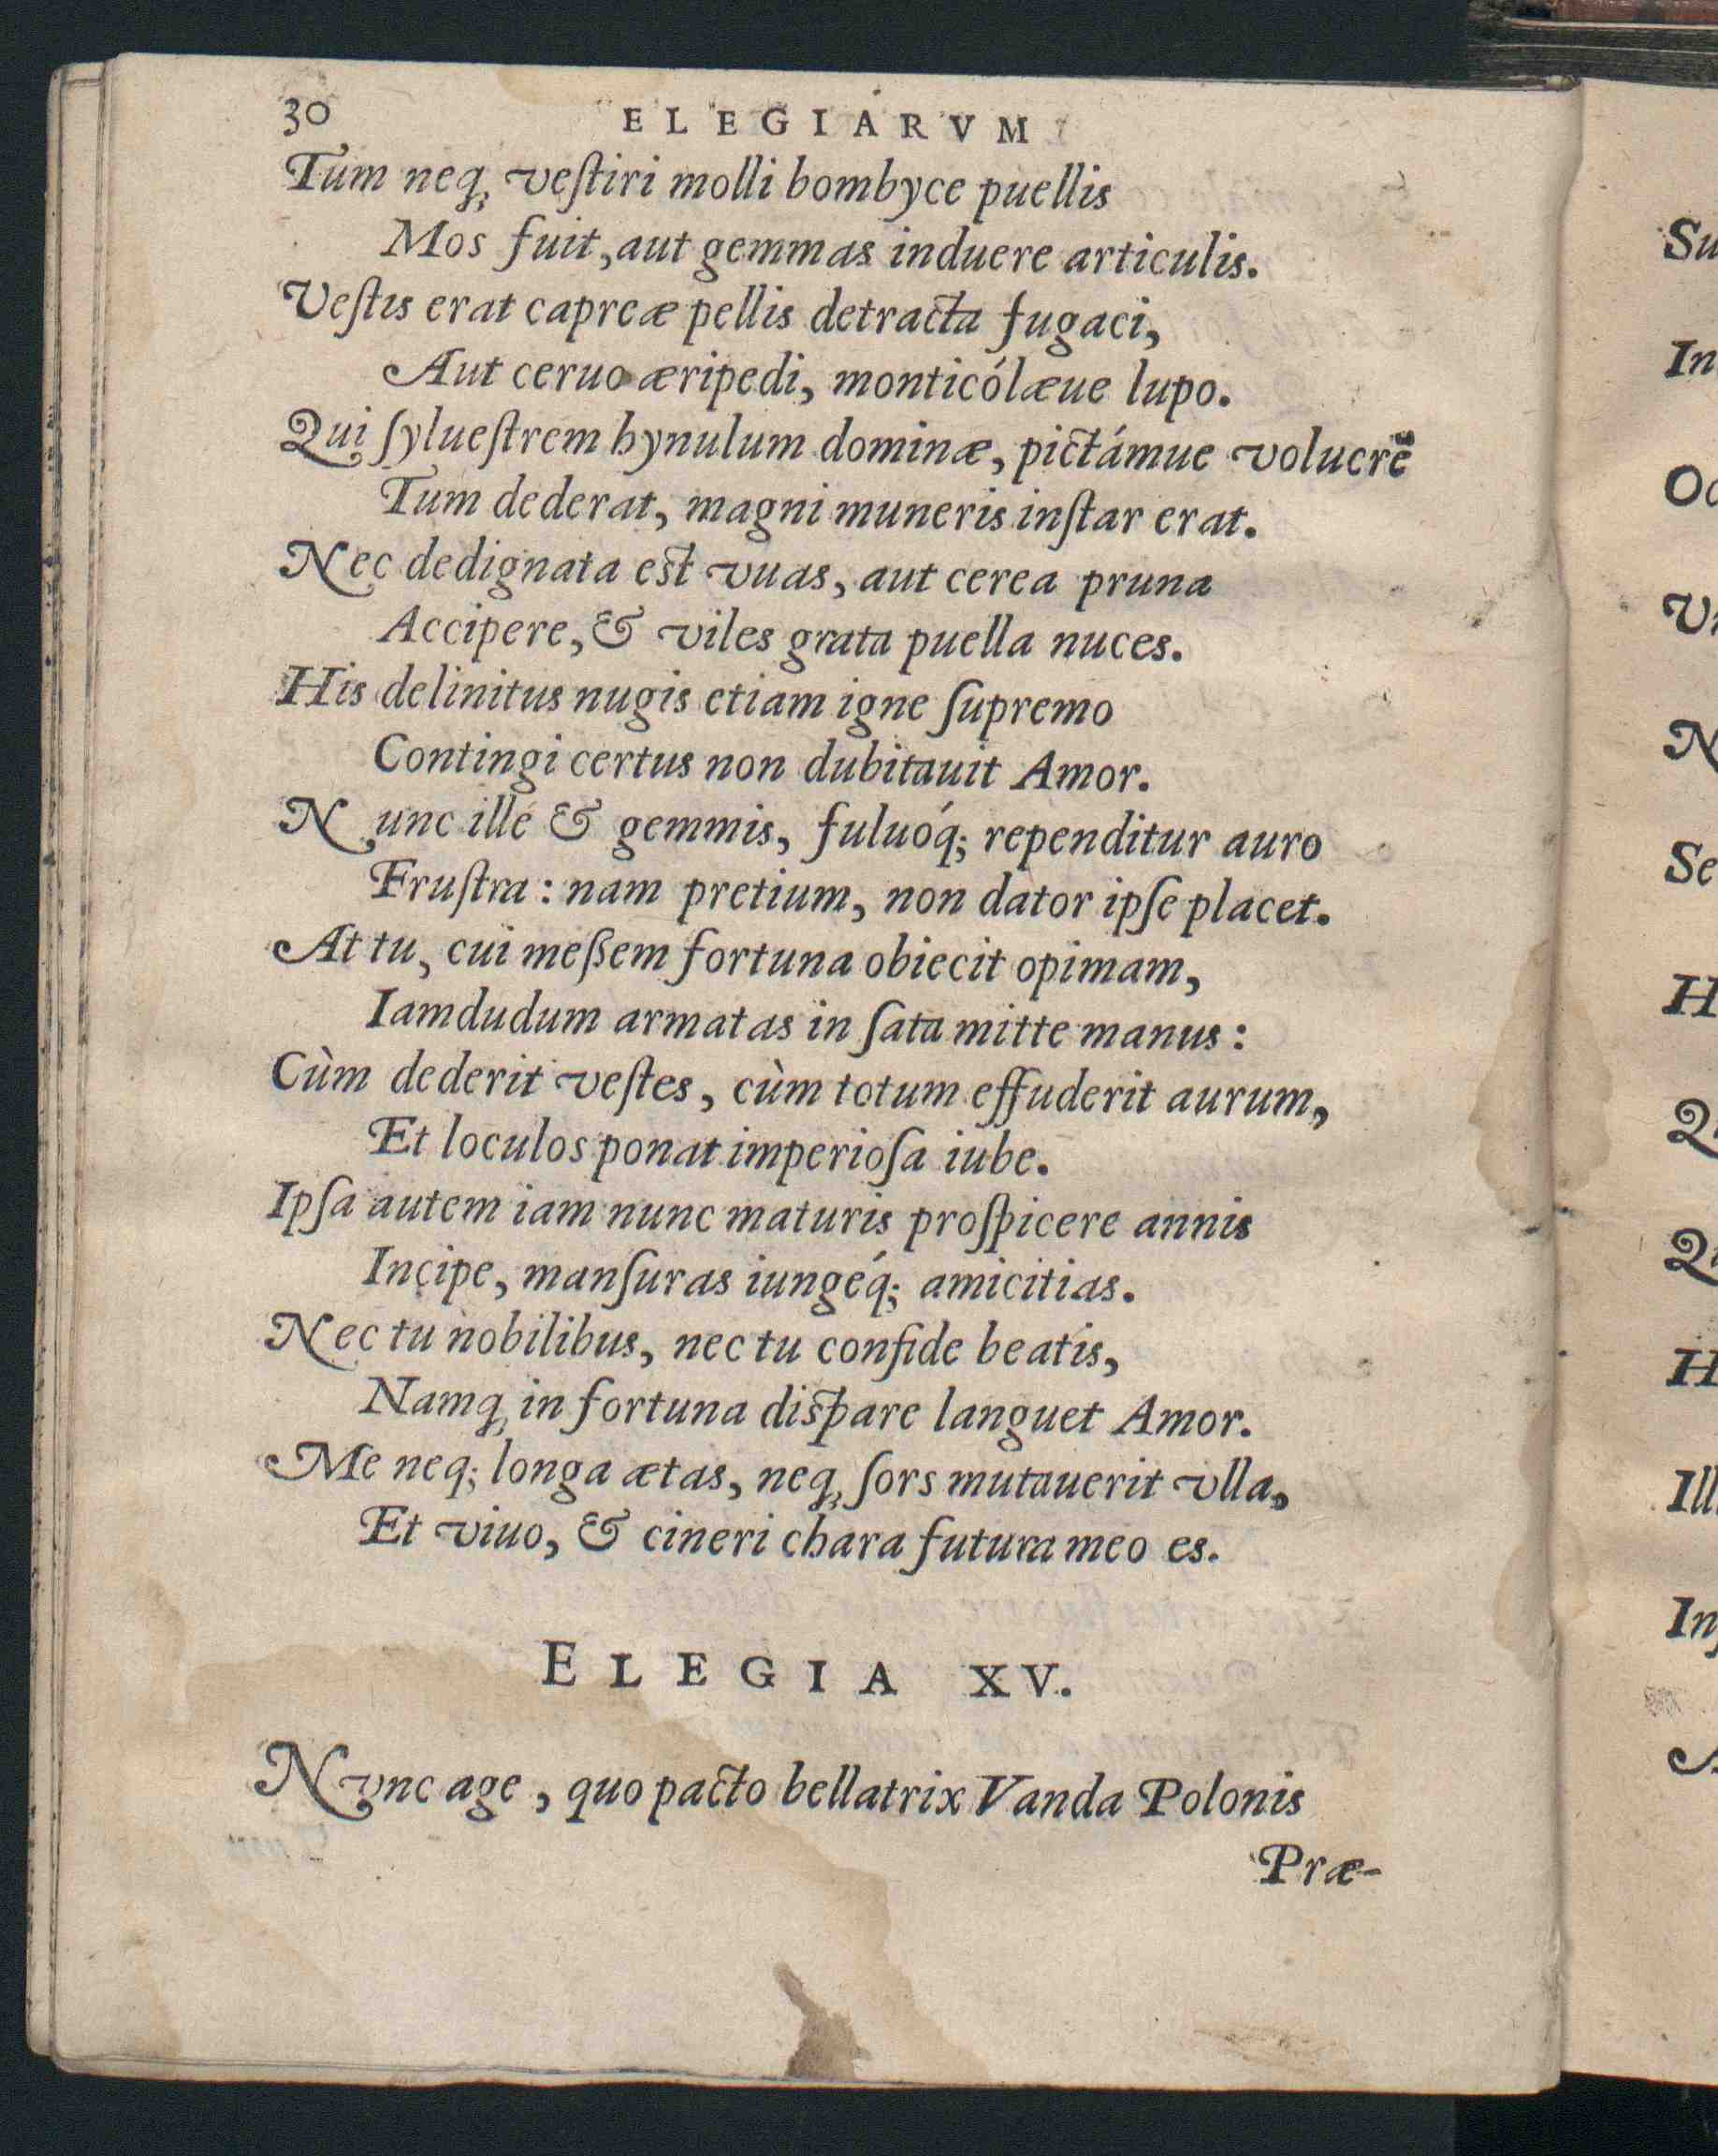 30 ELEGIARVM
Tum neq; veſtiri molli bombyce puellis
Mos fuit, aut gemmas induere articulis.
Veſtis erat capreæ pellis detracta fugaci,
Aut ceruo æripedi, monticólæue lupo.
Qui ſylueſtrem hynulum dominæ, pictámue volucrē
Tum dederat, magni muneris inſtar erat.
Nec dedignata est vuas, aut cerea pruna
Accipere, & viles grata puella nuces.
His delinitus nugis etiam igne ſupremo
Contingi certus non dubitauit Amor.
Nunc ille & gemmis, fuluóq; rependitur auro
Fruſtra: nam pretium, non dator ipſe placet.
At tu, cui meßem fortuna obiecit opimam,
Iamdudum armatas in ſata mitte manus:
Cùm dederit veſtes, cùm totum effuderit aurum,
Et loculos ponat imperioſa iube.
Ipſa autem iam nunc maturis proſpicere annis
Incipe, manſuras iungéq; amicitias.
Nec tu nobilibus, nec tu confide beatis,
Namq; in fortuna dispare languet Amor.
Me neq; longa ætas, neq; ſors mutauerit vlla,
Et viuo, & cineri chara futura meo es.
ELEGIA XV.
Nvnc age, quo pacto bellatrix Vanda Polonis
Præ-
Su
In
Se
H
H
Ill